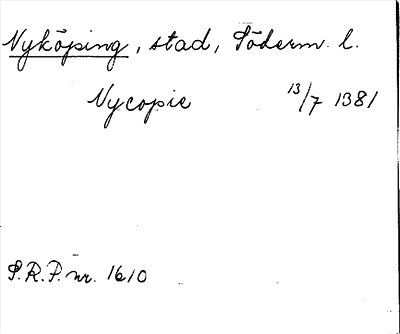 Nyköping, stad, Söderm. l.
Nycopie 13/7 1381
S.R.P. nr. 1610